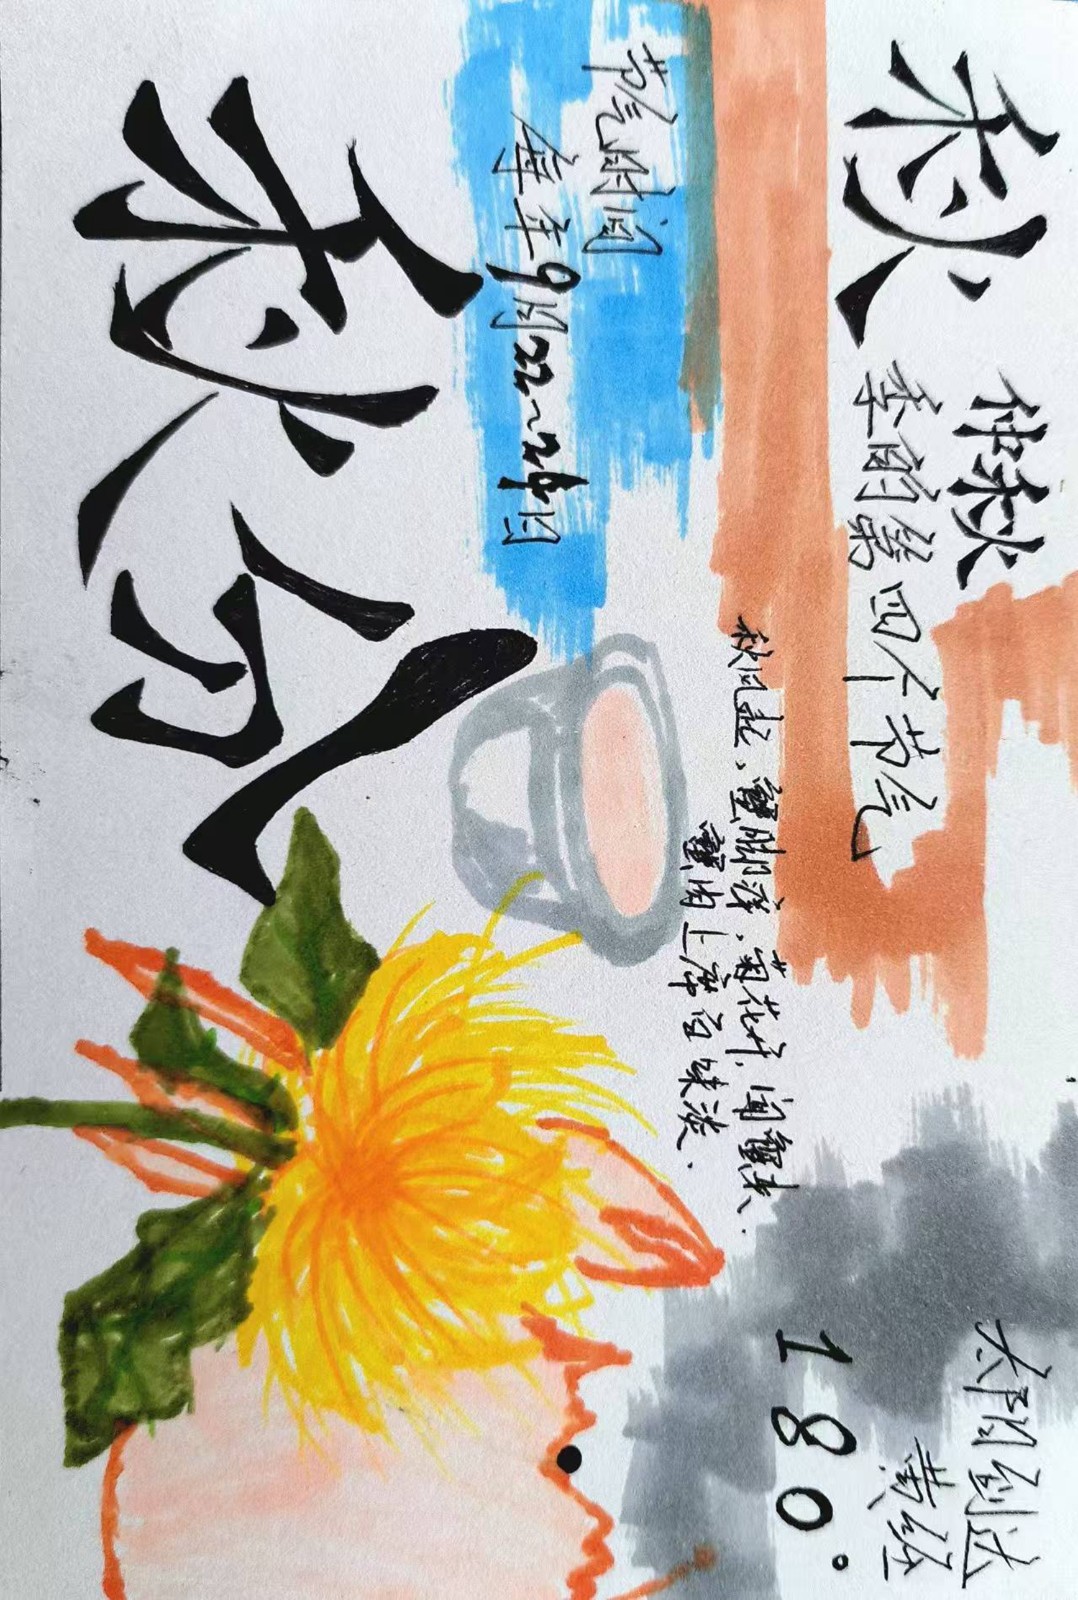 仲秋
秋季的第四个节气
太阳到达
黄经
180°
秋风起、蟹脚痒，菊花开，闻蟹来.
蟹肉上席百味淡.
节气时间
每年9月22~24日
秋分